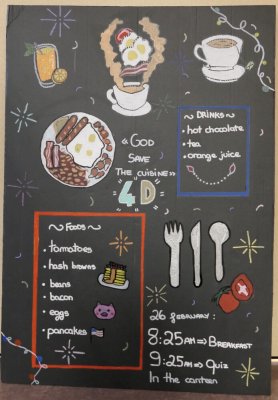 « God
Save
The cuisine »
4D
~ Drinks ~
• hot chocolate
• tea
• orange juice
~ Foods ~
• tomatoes
• hash browns
• beans
• bacon
• eggs
• pancakes
26 february :
8:25am ⇒ Breakfast
9:25am ⇒ Quiz
In the canteen